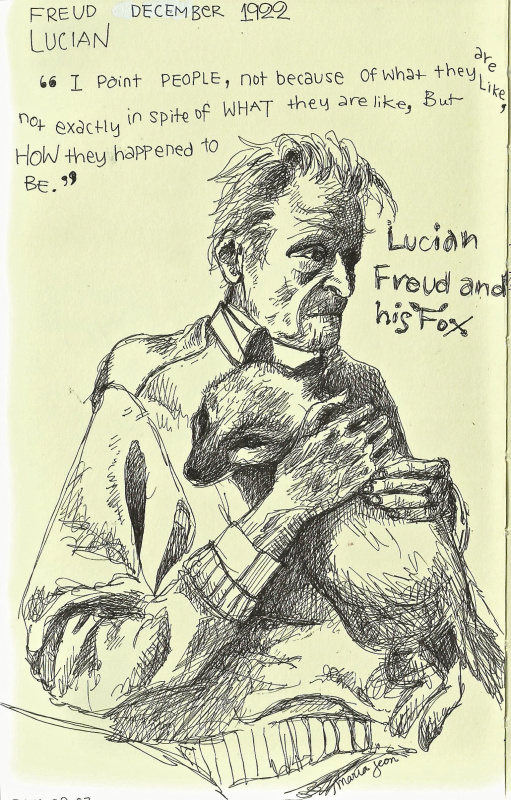 FREUD DECEMBER 1922
LUCIAN
“ I Paint PEOPLE, not because of what they are Like,
not exactly in spite of WHAT they are like, But
HOW they happened to
BE.”
Lucian
Freud and
his Fox
maria jeon